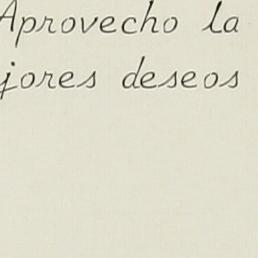 Aprovecho la
jores deseos